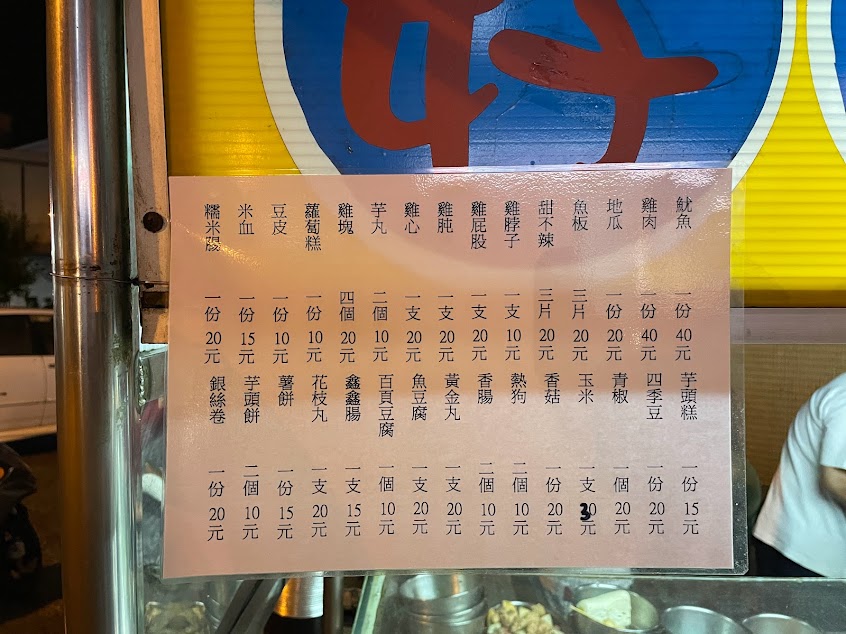 魷魚 一份 40元
雞肉 一份 40元
地瓜 一份 20元
魚板 三片 20元
甜不辣 三片 20元
雞脖子 一支 10元
雞屁股 一支 20元
雞肫 一支 20元
雞心 一支 20元
芋丸 二個 10元
雞塊 四個 20元
蘿蔔糕 一份 10元
豆皮 一份 10元
米血 一份 15元
糯米腸 一份 20元
芋頭糕 一份 15元
四季豆 一份 20元
青椒 一個 20元
玉米 一支 30元
香菇 一份 20元
熱狗 二個 10元
香腸 二個 10元
黃金丸 一支 20元
魚豆腐 一支 20元
百頁豆腐 一個 10元
鑫鑫腸 一支 15元
花枝丸 一支 20元
薯餅 一份 15元
芋頭餅 二個 10元
銀絲卷 一份 20元